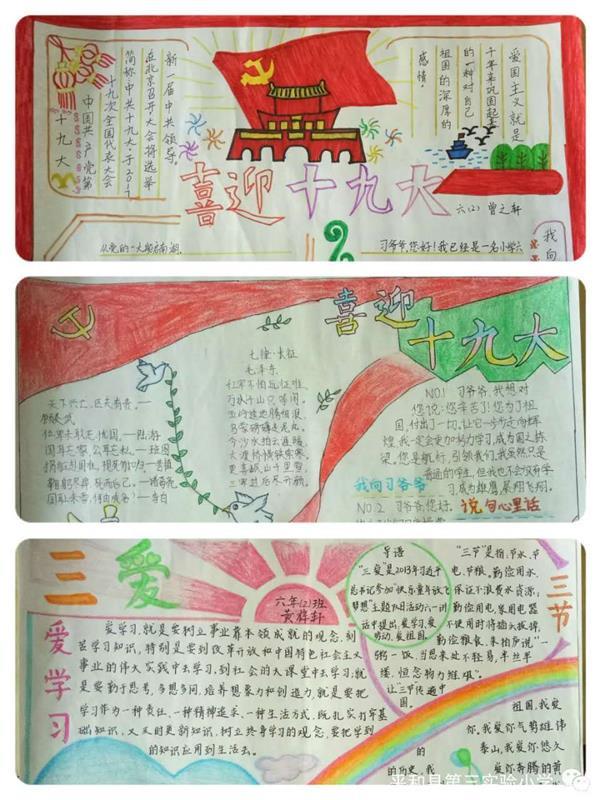 十九大
中国共产党第
十九次全国代表大会
简称:中共十九大,于201
在北京召开大会将选举
新一届中共领导。
爱国主义就是
千年来巩固起来
的一种对自己
祖国的深厚的
感情。
喜迎十九大
六(2) 曾之轩
从党的一大
习爷爷,您好!我已经是一名小学六
我向
喜迎十九大
七律·长征
毛泽东
红军不怕远征难,
万水千山只等闲。
五岭逶迤腾细浪,
乌蒙磅礴走泥丸。
金沙水拍云崖暖,
大渡桥横铁索寒。
更喜岷山千里雪,
三军过后尽开颜。
天下兴亡,匹夫有责。—
顾炎武
位卑未敢忘忧国。—陆游
国耻未雪,何由成名?—李白
NO.1 习爷爷,我想对
您说:您辛苦了!您为了祖
国,付出了一切,让它一步步走向辉
煌,我一定会更加努力学习,成为国之栋
梁。您是航行,引领我们,我虽然只是
普通的学生,但我也不会放弃学
习,成为雄鹰,展翅飞翔。
我向习爷爷
说句心里话
NO.2 习爷爷,您好。
三爱
六年(2)班
黄梓轩
爱学习
爱学习,就是要树立事业靠本领成就的观念,刻
苦学习知识,特别是要到改革开放和中国特色社会主义
事业的伟大实践中去学习,到社会的大课堂中去学习;就
是要勤于思考,多想多问,培养想象力和创造力;就是要把
学习作为一种责任、一种精神追求、一种生活方式,既扎实打牢基
础知识,又及时更新知识,树立终身学习的观念;要把学到
的知识应用到生活去。
导语
"三爱"是2013年习近平
总书记参加"快乐童年 放飞
梦想"主题队日活动六一讲
话中提出爱学习、爱
劳动、爱祖国。
三节
"三节"是指:节水、节
电、节粮。勤俭用水,
保证不浪费水资源;
勤俭用电,家用电器
不使用时将插头拔掉,
勤俭粮食,朱柏庐说"一
粥一饭,当思来处不易;半丝半
缕,恒念物力维艰"。
让三节传遍中
国。
祖国,我爱
你。我爱你与
泰山,我爱你悠久
的历史,我
爱你奔腾的黄
平和县第三实验小学